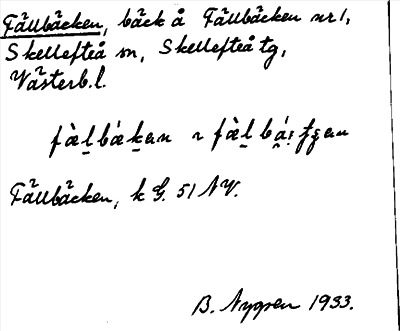 Fällbäcken, bäck å Fällbäcken nr 1,
Skellefteå sn, Skellefteå tg,
Västerb. l.
Fällbäcken, k G. 51 NV.
B. Nygren 1933.